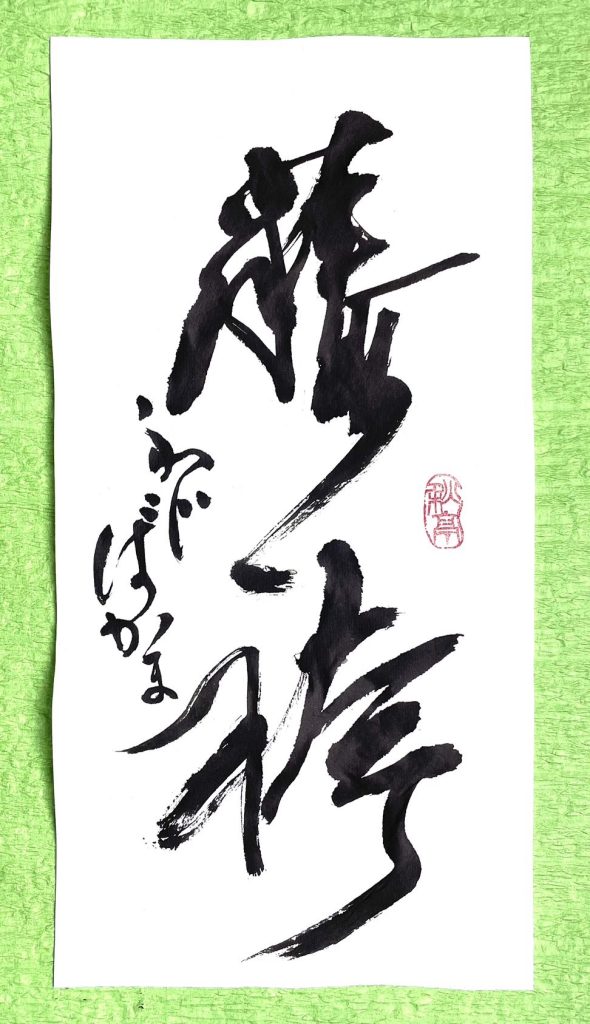 藤袴
ふじばかま
秋亭